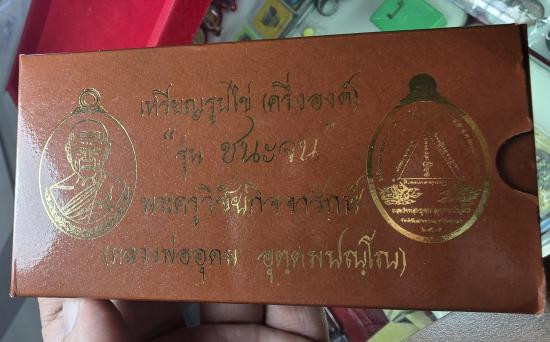 เหรียญรูปไข่ (ครึ่งองค์)
"รุ่น ชนะจน"
พระครูวิชัยกิจจารักษ์
(หลวงพ่ออุดม อุตฺตมปญฺโญ)